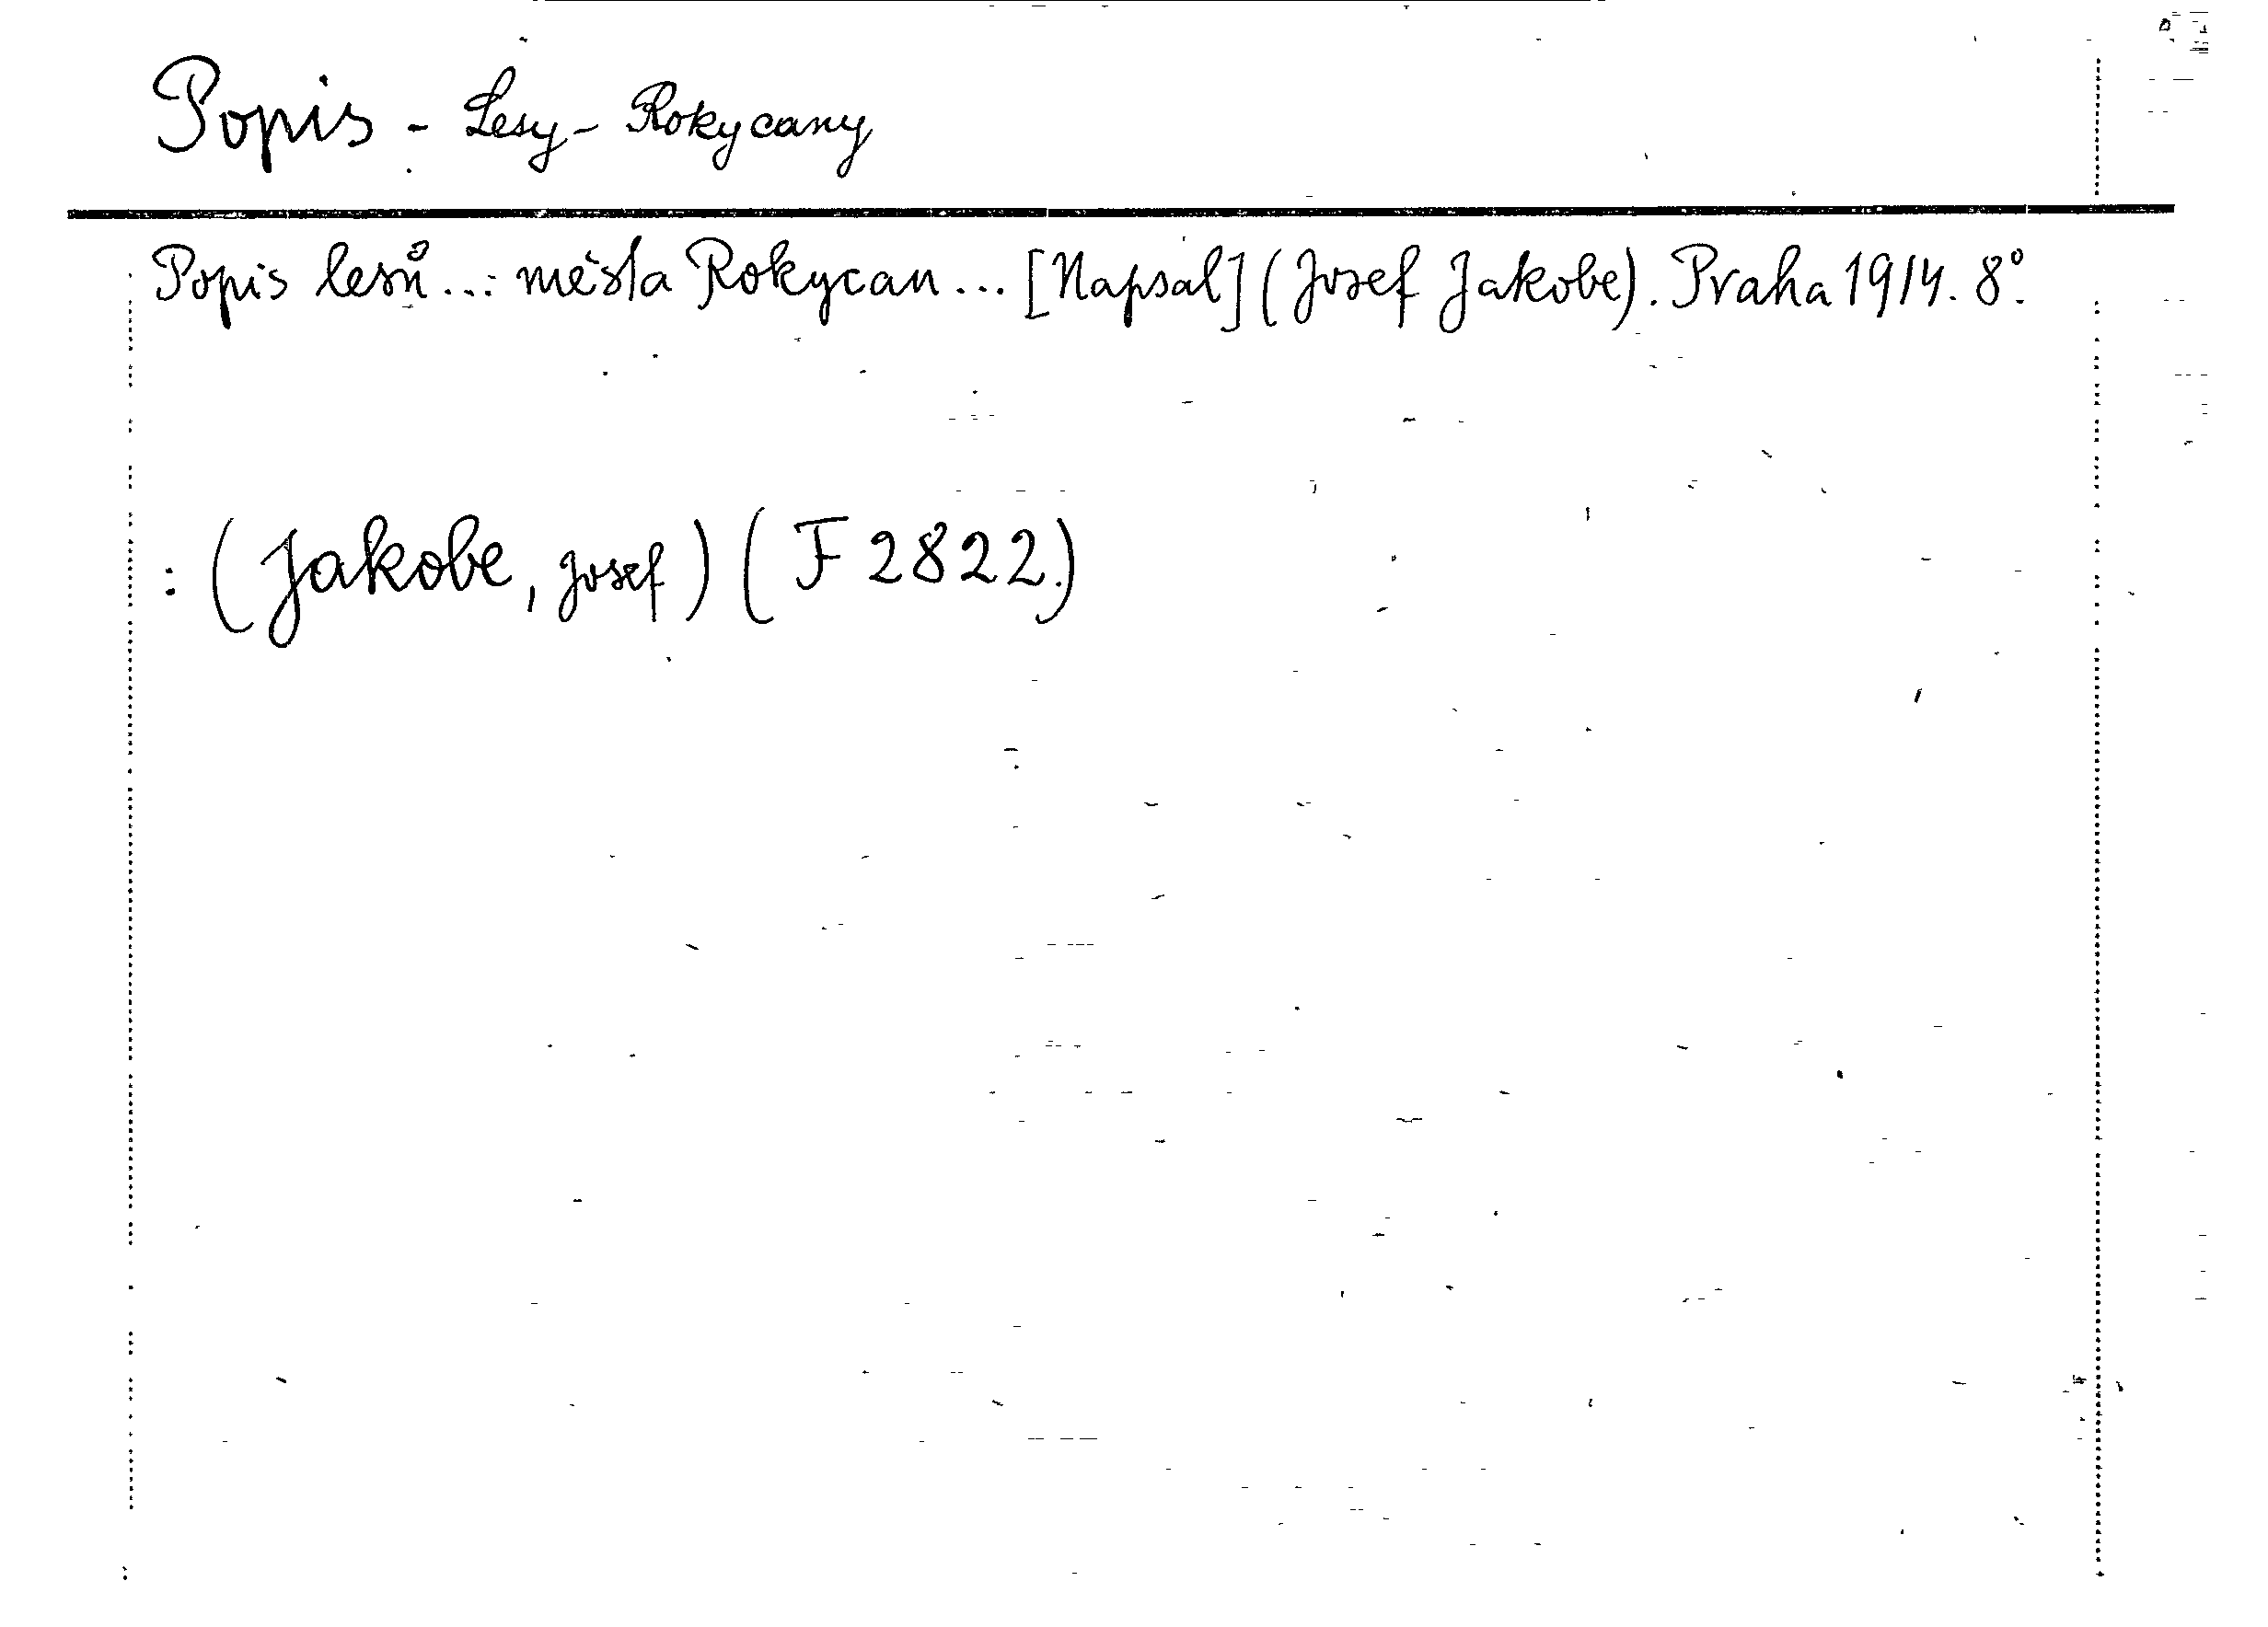 Popis - Lesy - Rokycany
Popis lesů ... města Rokycan ... [Napsal] (Josef Jakobe). Praha 1914. 8°.
: (Jakobe, Josef) (F 2822.)